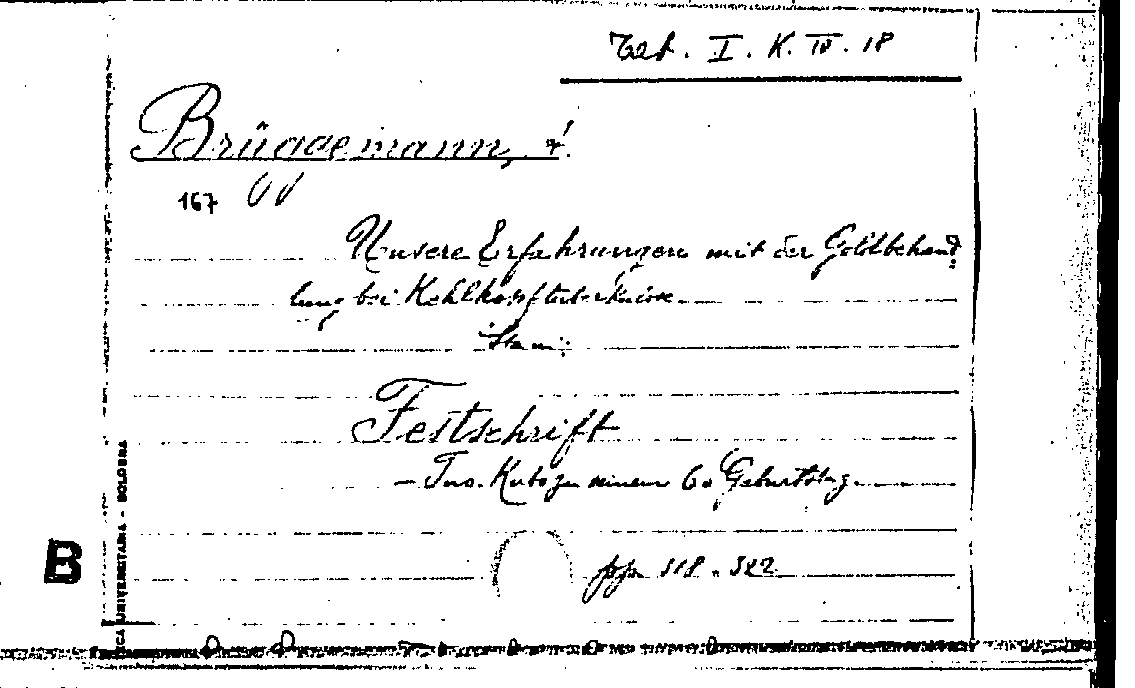 I. K. IV. 18
Brüggemann, A.
167
Unsere Erfahrungen mit der Goldbehand=
lung bei Kehlkopftuberkulose
Festschrift
Ino. Kubo zu seinem 60 Geburtstag
pp. 318-322
B
CA UNIVERSITARIA - BOLOGNA